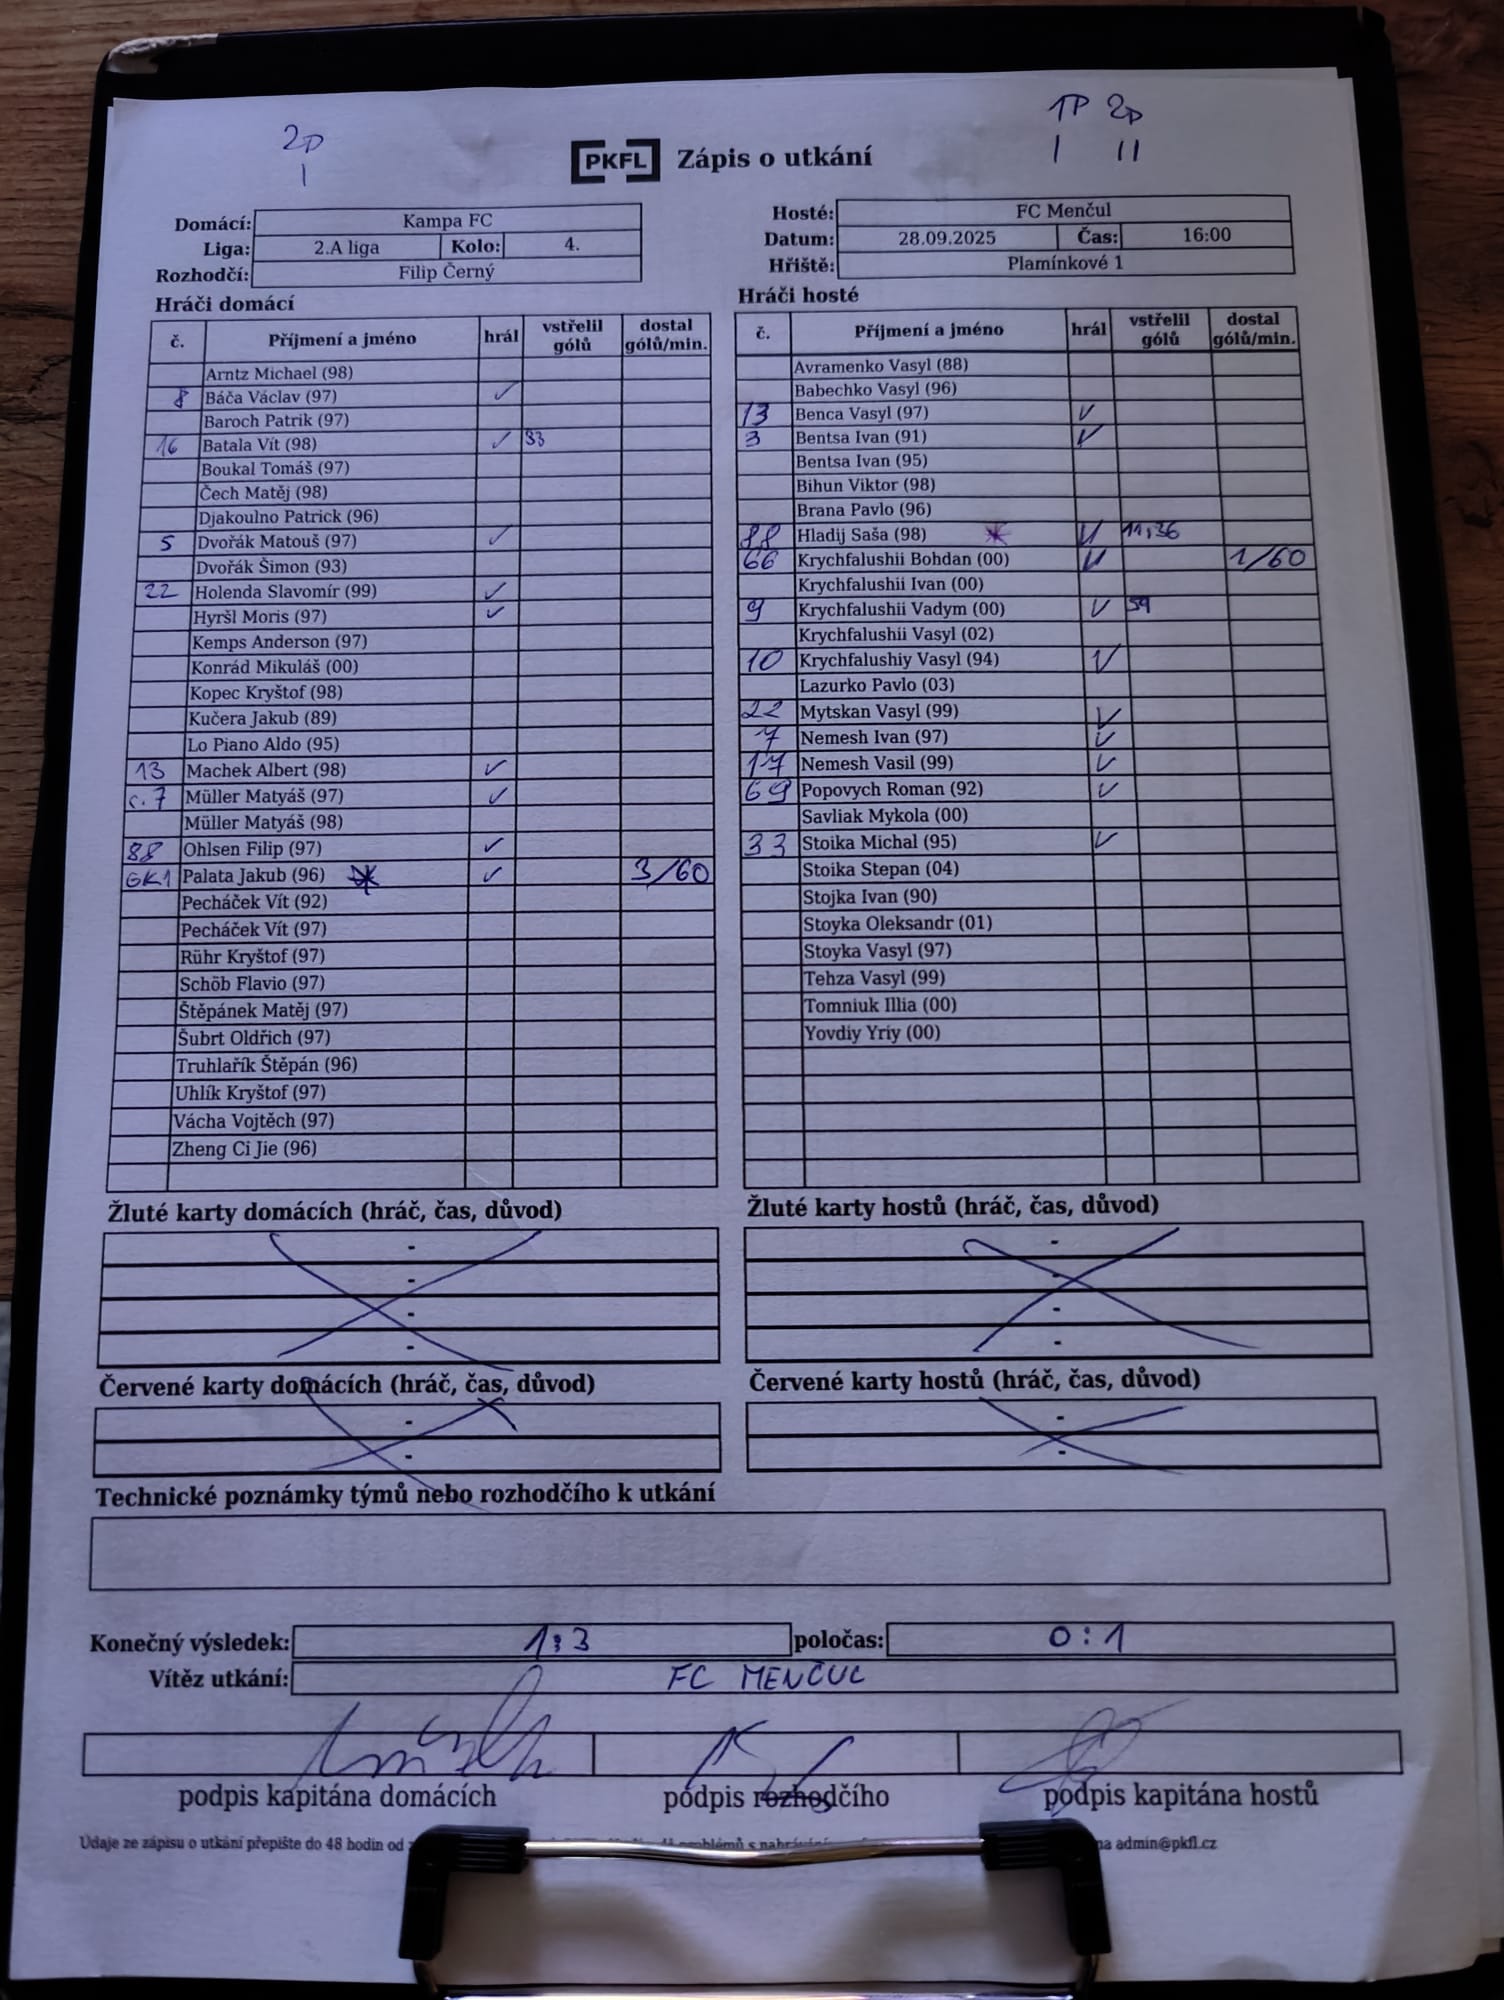 2P
I
1P 2P
I II
PKFL Zápis o utkání
Domácí: Kampa FC
Liga: 2.A liga Kolo: 4.
Rozhodčí: Filip Černý
Hosté: FC Menčul
Datum: 28.09.2025 Čas: 16:00
Hřiště: Plamínkové 1
Hráči domácí
č. Příjmení a jméno hrál vstřelil gólů dostal gólů/min.
Arntz Michael (98)
8 Báča Václav (97) ✓
Baroch Patrik (97)
16 Batala Vít (98) ✓ 33
Boukal Tomáš (97)
Čech Matěj (98)
Djakoulno Patrick (96)
5 Dvořák Matouš (97) ✓
Dvořák Šimon (93)
22 Holenda Slavomír (99) ✓
Hyršl Moris (97) ✓
Kemps Anderson (97)
Konrád Mikuláš (00)
Kopec Kryštof (98)
Kučera Jakub (89)
Lo Piano Aldo (95)
13 Machek Albert (98) ✓
c. 7 Müller Matyáš (97) ✓
Müller Matyáš (98)
88 Ohlsen Filip (97) ✓
GK1 Palata Jakub (96) * ✓ 3/60
Pecháček Vít (92)
Pecháček Vít (97)
Rühr Kryštof (97)
Schöb Flavio (97)
Štěpánek Matěj (97)
Šubrt Oldřich (97)
Truhlařík Štěpán (96)
Uhlík Kryštof (97)
Vácha Vojtěch (97)
Zheng Ci Jie (96)
Hráči hosté
č. Příjmení a jméno hrál vstřelil gólů dostal gólů/min.
Avramenko Vasyl (88)
Babechko Vasyl (96)
13 Benca Vasyl (97) ✓
3 Bentsa Ivan (91) ✓
Bentsa Ivan (95)
Bihun Viktor (98)
Brana Pavlo (96)
88 Hladij Saša (98) * ✓ 11,36
66 Krychfalushii Bohdan (00) ✓ 1/60
Krychfalushii Ivan (00)
9 Krychfalushii Vadym (00) ✓ 59
Krychfalushii Vasyl (02)
10 Krychfalushiy Vasyl (94) ✓
Lazurko Pavlo (03)
22 Mytskan Vasyl (99) ✓
7 Nemesh Ivan (97) ✓
17 Nemesh Vasil (99) ✓
69 Popovych Roman (92) ✓
Savliak Mykola (00)
33 Stoika Michal (95) ✓
Stoika Stepan (04)
Stojka Ivan (90)
Stoyka Oleksandr (01)
Stoyka Vasyl (97)
Tehza Vasyl (99)
Tomniuk Illia (00)
Yovdiy Yriy (00)
Žluté karty domácích (hráč, čas, důvod)
-
-
-
-
Žluté karty hostů (hráč, čas, důvod)
-
-
-
-
Červené karty domácích (hráč, čas, důvod)
-
-
Červené karty hostů (hráč, čas, důvod)
-
-
Technické poznámky týmů nebo rozhodčího k utkání
Konečný výsledek: 1:3 poločas: 0:1
Vítěz utkání: FC MENČUL
podpis kapitána domácích podpis rozhodčího podpis kapitána hostů
Údaje ze zápisu o utkání přepište do 48 hodin od admin@pkfl.cz